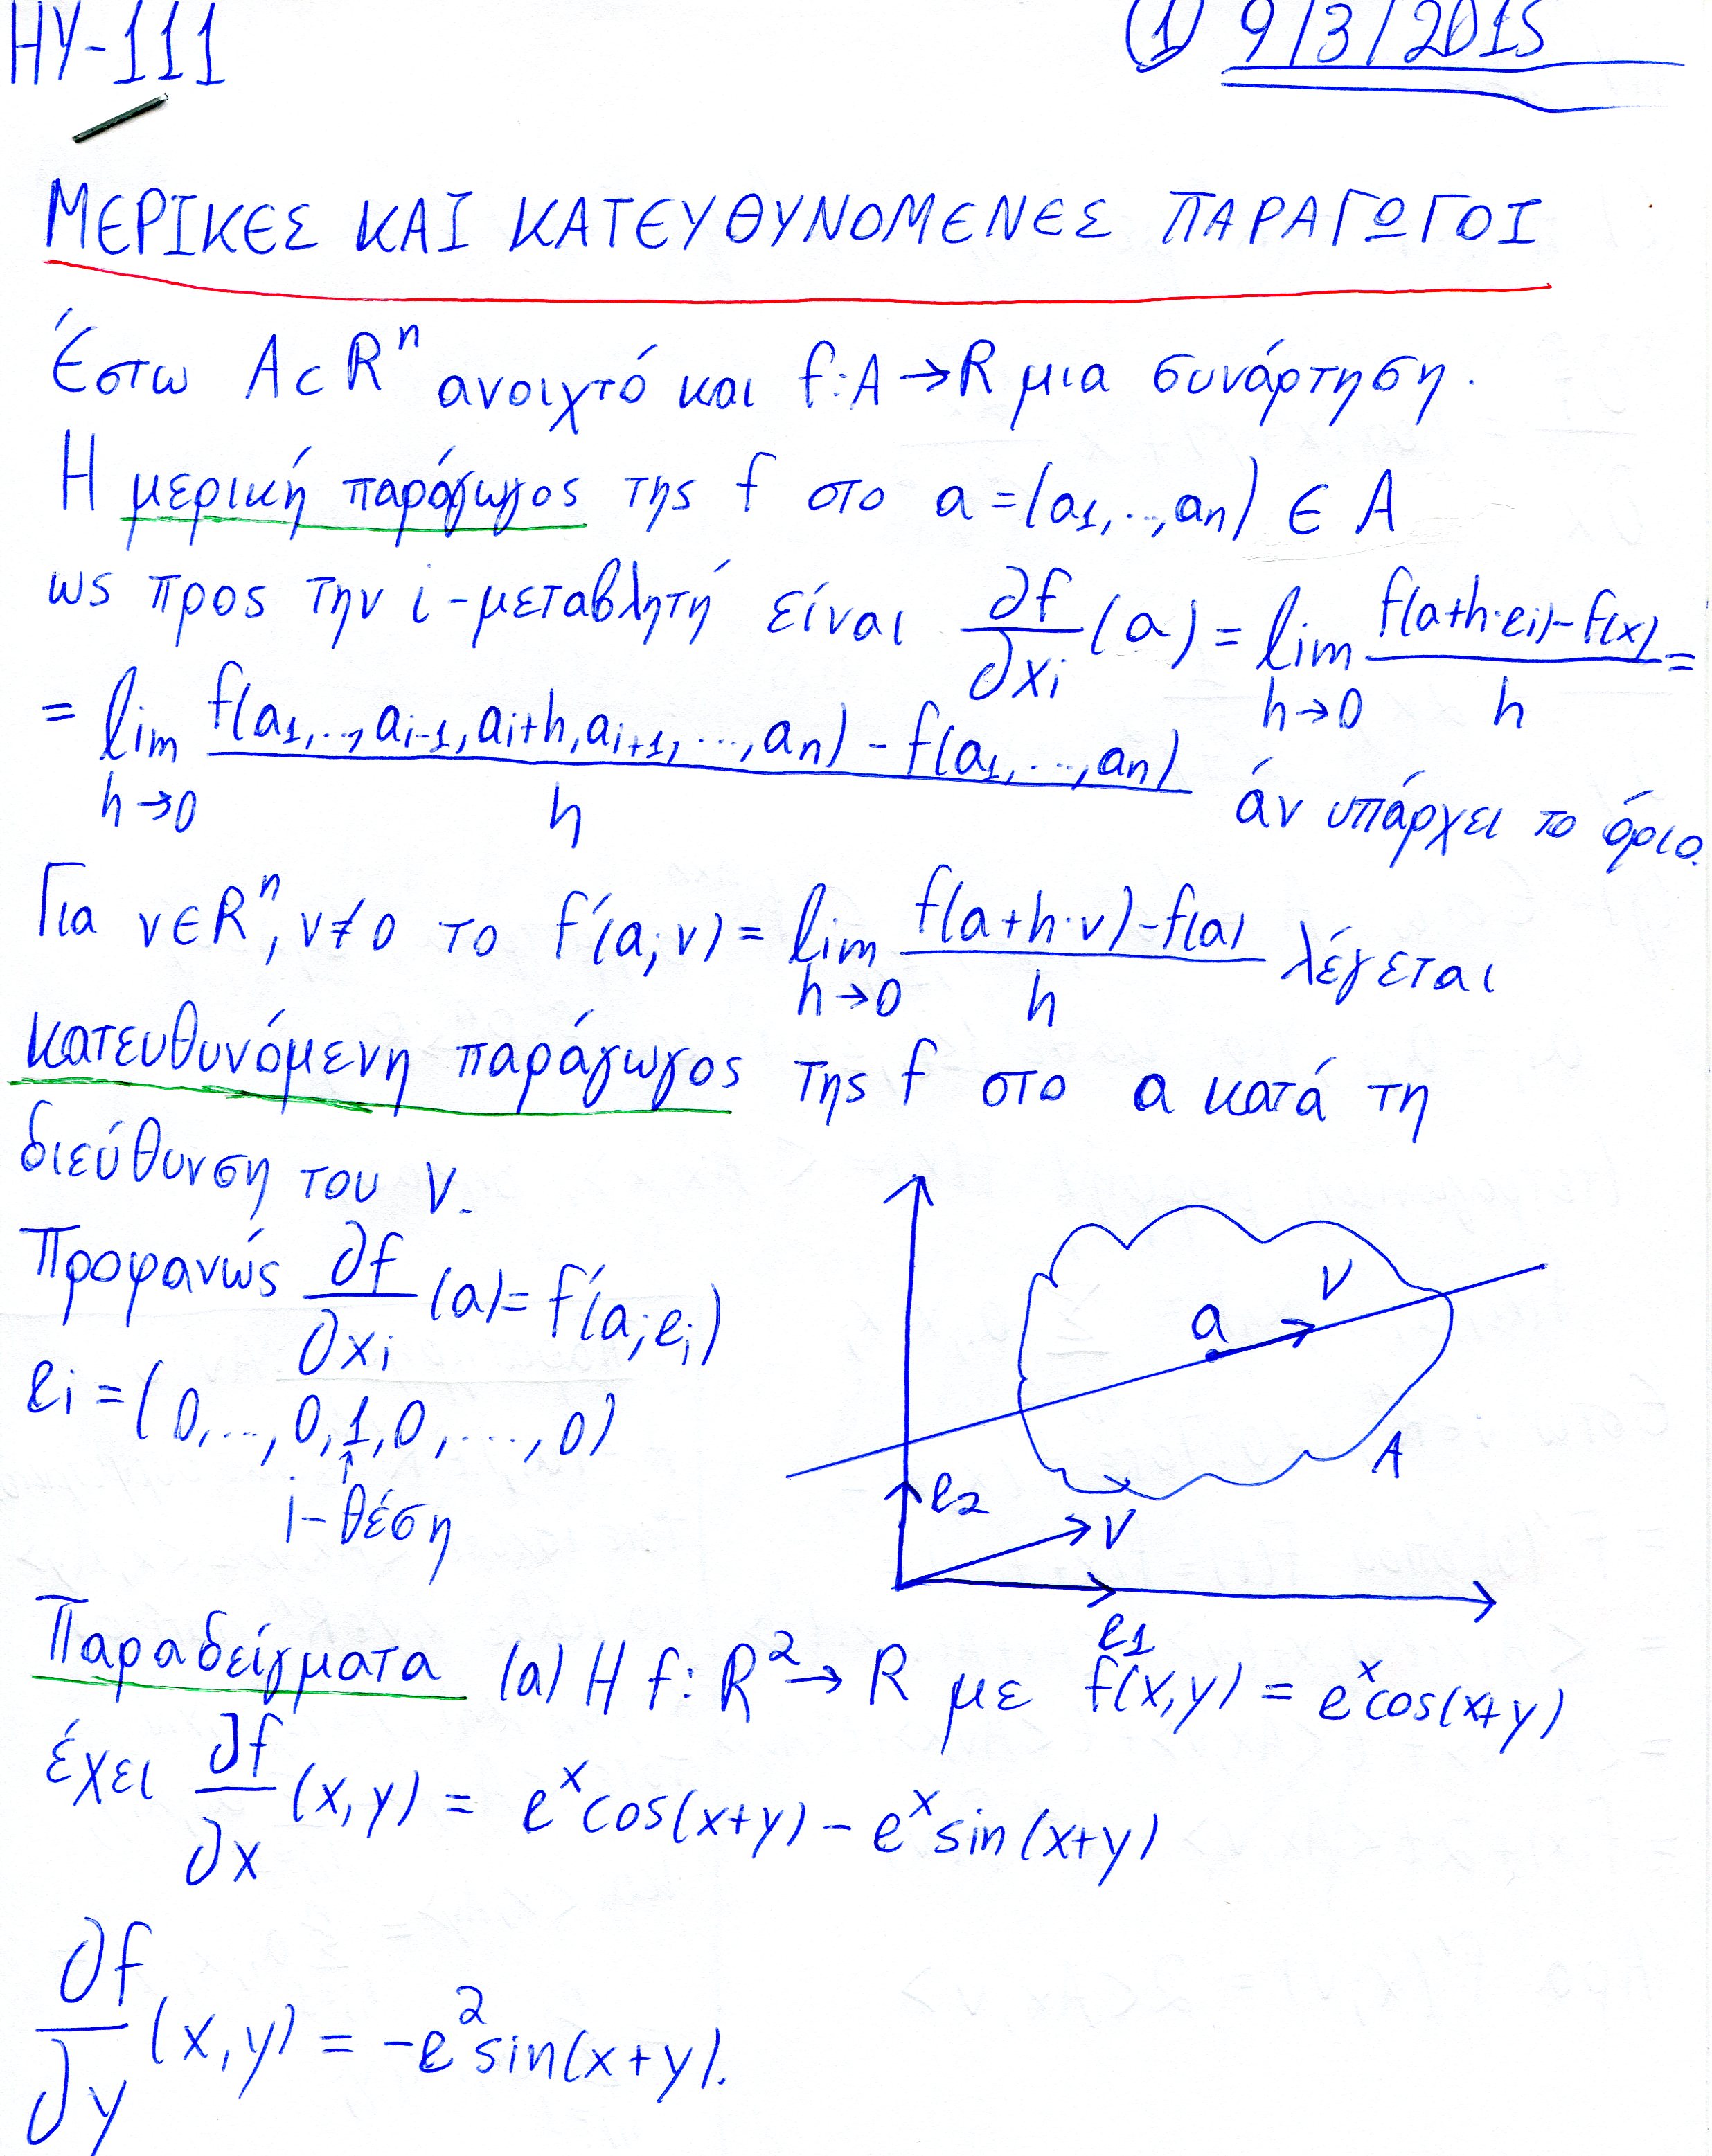 HY-111
(1) 9/3/2015
ΜΕΡΙΚΕΣ ΚΑΙ ΚΑΤΕΥΘΥΝΟΜΕΝΕΣ ΠΑΡΑΓΩΓΟΙ
Έστω A⊂R^n ανοιχτό και f:A→R μια συνάρτηση.
Η μερική παράγωγος της f στο a=(a_1,..,a_n) ∈ A
ως προς την i-μεταβλητή είναι ∂f/∂x_i (a) = lim_{h→0} (f(a+h·e_i)-f(x))/h =
= lim_{h→0} (f(a_1,..,a_{i-1},a_i+h,a_{i+1},...,a_n) - f(a_1,...,a_n))/h άν υπάρχει το όριο.
Για v∈R^n, v≠0 το f'(a;v) = lim_{h→0} (f(a+h·v)-f(a))/h λέγεται
κατευθυνόμενη παράγωγος της f στο a κατά τη
διεύθυνση του v.
Προφανώς ∂f/∂x_i (a) = f'(a;e_i)
e_i = (0,...,0,1,0,...,0)
↑
i-θέση
v
a
A
e_2
v
e_1
Παραδείγματα (a) Η f: R^2→R με f(x,y) = e^x cos(x+y)
έχει ∂f/∂x (x,y) = e^x cos(x+y) - e^x sin(x+y)
∂f/∂y (x,y) = -e^2 sin(x+y).